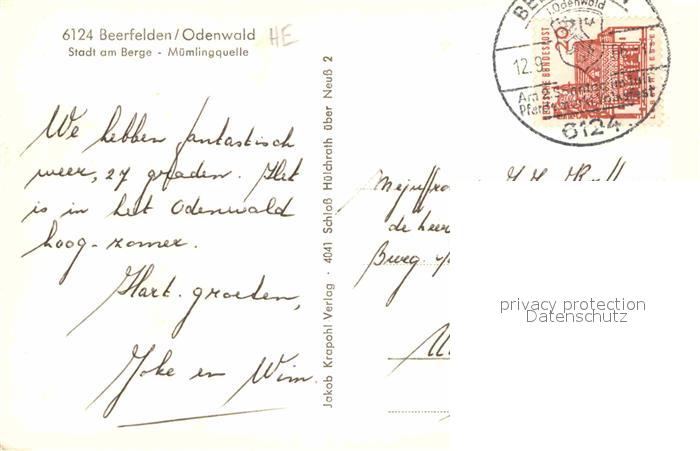 6124 Beerfelden/Odenwald
Stadt am Berge - Mümlingquelle
HE
We hebben fantastisch
weer, 27 graden. Het
is in het Odenwald
hoog-zomer.
Hart. groeten,
Joke en Wim.
Jakob Krapohl Verlag · 4041 Schloß Hülchrath über Neuß 2
i.Odenwald
12.9
Am 2.
6124
20
DEUTSCHE BUNDESPOST
Mejuffro
de heer
Burg.
privacy protection
Datenschutz